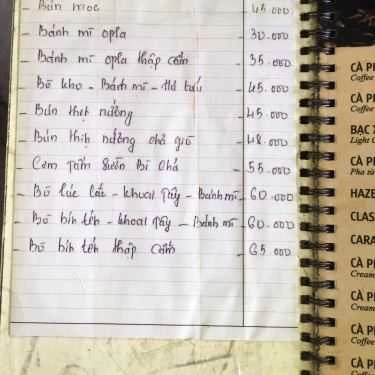 - Bún mọc 45.000
- Bánh mì opla 30.000
- Bánh mì opla thập cẩm 35.000
- Bò kho - Bánh mì - Hủ tiếu 45.000
- Bún thịt nướng 45.000
- Bún thịt nướng chả giò 48.000
- Cơm Tấm Sườn Bì Chả 55.000
- Bò lúc lắc - khoai Tây - Bánh mì 60.000
- Bò bít tết - khoai Tây - Bánh mì 60.000
- Bò bít tết thập cẩm 65.000
CÀ P
Coffee
CÀ P
Coffee
BẠC
Light C
CÀ P
Pha từ
HAZE
CLAS
CARA
CÀ P
Cream
CÀ P
Cream
CÀ P
Coffee
CÀ P
Coffee